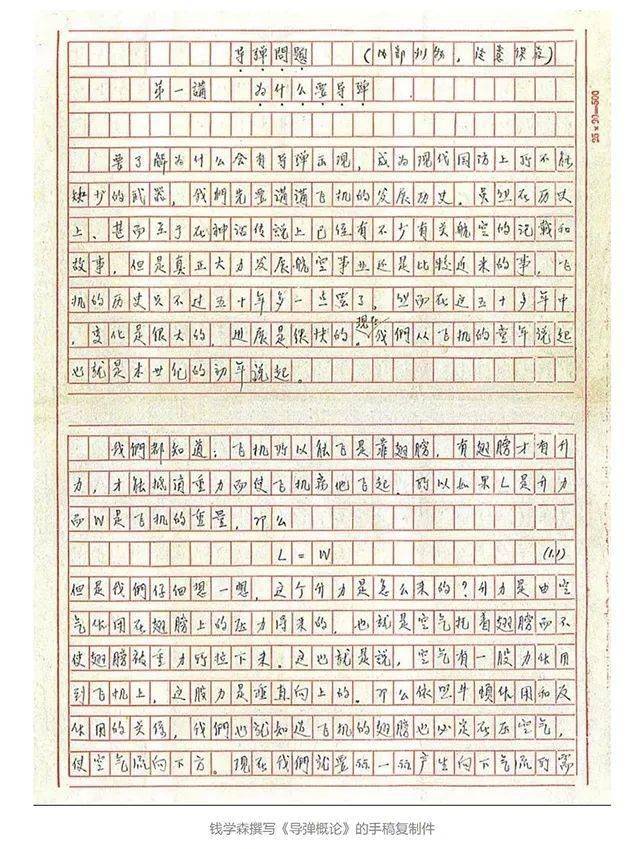 导弹問題 (内部刊物,注意保存)
第一講 为什么要导弹
25×20=500
要了解为什么会有导弹出現,成为現代国防上所不能
缺少的武器,我們先要講講飞机的发展历史。虽然在历史
上、甚而至于在神话传說上已经有不少有关航空的记載和
故事,但是真正大力发展航空事业还是比较近来的事,飞
机的历史只不过五十年多一点罢了。然而在这五十多年中
,变化是很大的,進展是很快的。現在我們从飞机的童年說起
也就是本世纪的初年說起。
我們都知道:飞机所以能飞是靠翅膀,有翅膀才有升
力,才能抵消重力而使飞机离地飞起。所以如果L是升力
而W是飞机的重量,那么
L = W (1.1)
但是我們仔细想一想,这个升力是怎么来的?升力是由空
气作用在翅膀上的压力得来的,也就是空气托着翅膀而不
使翅膀被重力所拉下来。这也就是說,空气有一股力作用
到飞机上,这股力是垂直向上的。那么依照牛頓作用和反
作用的关係,我們也就知道飞机的翅膀也必定在压空气,
使空气流向下方。現在我們就要算一算产生向下气流所需
钱学森撰写《导弹概论》的手稿复制件